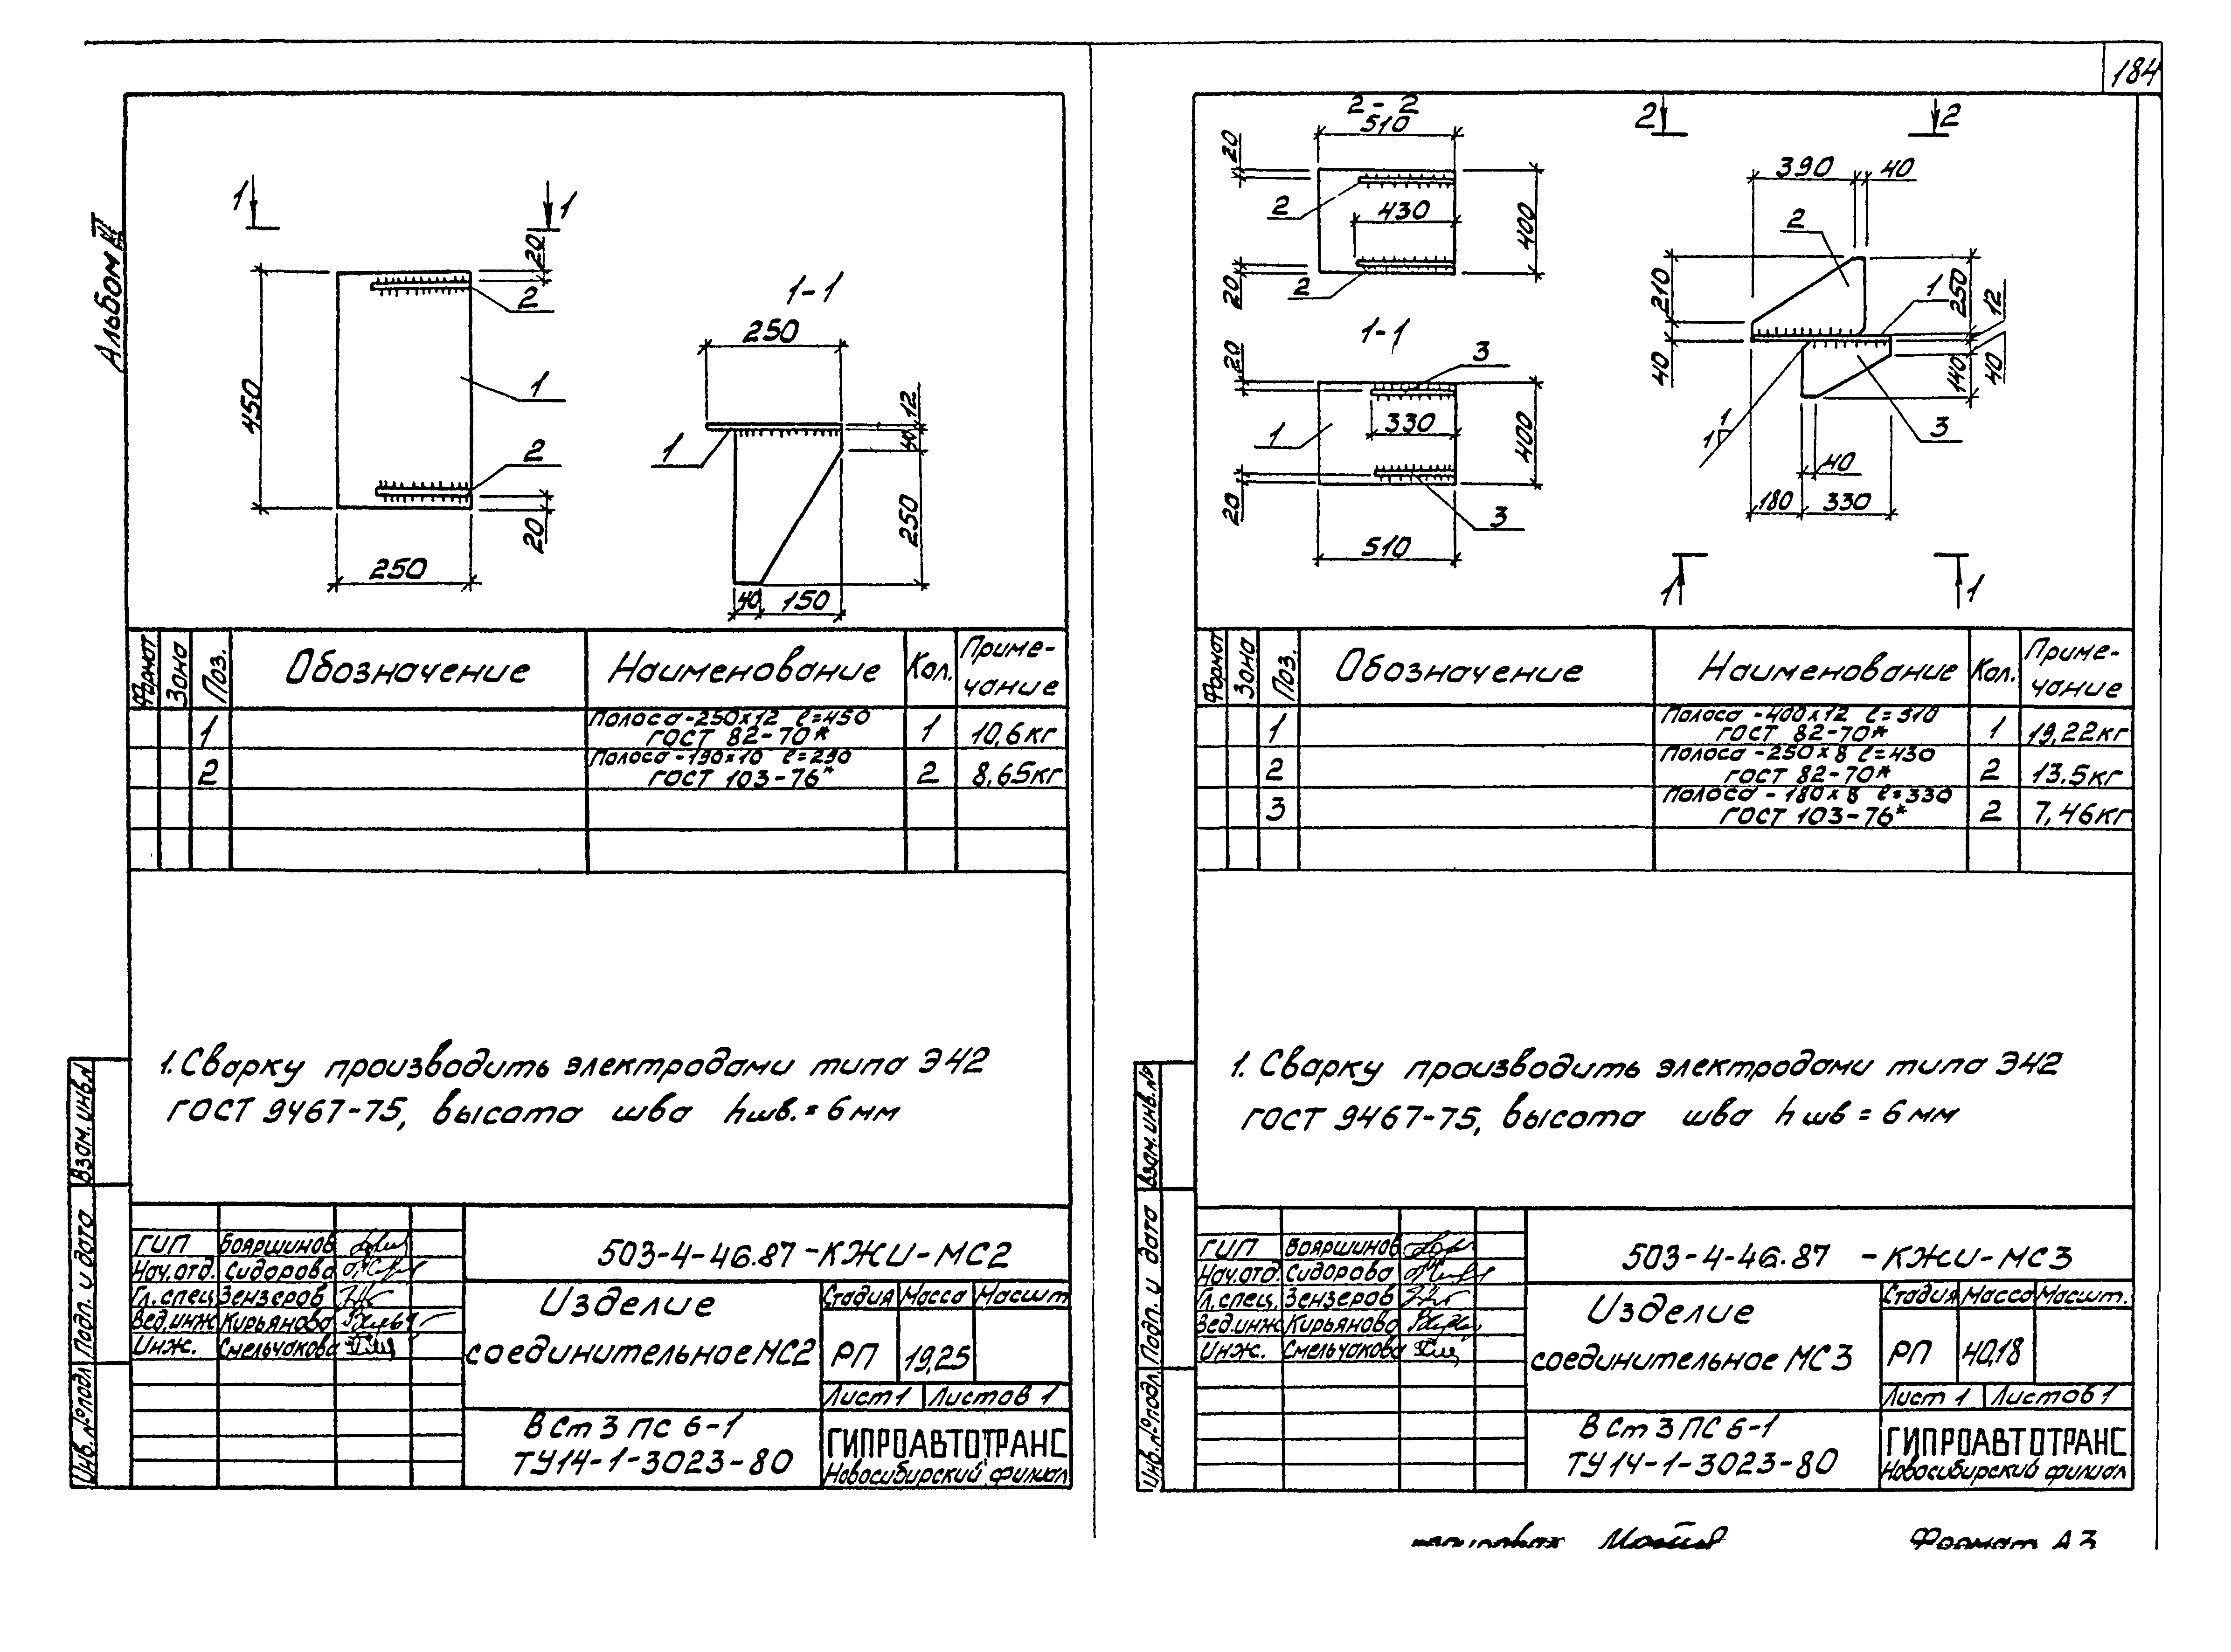 184
Альбом VI
1 1
20
2
450
1
2
20
250
1-1
250
12
40
1
250
40 150
Формат Зона Поз. Обозначение Наименование Кол. Приме-
чание
1 Полоса -250х12 ℓ=450
ГОСТ 82-70* 1 10,6кг
2 Полоса -190х10 ℓ=290
ГОСТ 103-76* 2 8,65кг
1. Сварку производить электродами типа Э42
ГОСТ 9467-75, высота шва hшв.=6мм
Взам.инв.№
Подп. и дата
Инв.№подл
ГИП Бояршинов
Нач.отд. Сидорова
Гл.спец Зензеров
Вед.инж Кирьянова
Инж. Смельчакова
503-4-46.87-КЖИ-МС2
Изделие
соединительное МС2
Стадия Масса Масшт.
РП 19,25
Лист 1 Листов 1
ВСт3ПС6-1
ТУ14-1-3023-80
ГИПРОАВТОТРАНС
Новосибирский филиал
2-2
510
20
2
430
400
20
2
1-1
20
3
1
330
400
20
3
510
2 2
390 40
2
210
1
250
12
40
140
40
3
1
1
40
180 330
1 1
Формат Зона Поз. Обозначение Наименование Кол. Приме-
чание
1 Полоса -400х12 ℓ=510
ГОСТ 82-70* 1 19,22кг
2 Полоса -250х8 ℓ=430
ГОСТ 82-70* 2 13.5кг
3 Полоса -180х8 ℓ=330
ГОСТ 103-76* 2 7,46кг
1. Сварку производить электродами типа Э42
ГОСТ 9467-75, высота шва hшв=6мм
Взам.инв.№
Подп. и дата
Инв.№подл.
ГИП Бояршинов
Нач.отд. Сидорова
Гл.спец. Зензеров
Вед.инж Кирьянова
Инж. Смельчакова
503-4-46.87 -КЖИ-МС3
Изделие
соединительное МС3
Стадия Масса Масшт.
РП 40,18
Лист 1 Листов 1
ВСт3ПС6-1
ТУ14-1-3023-80
ГИПРОАВТОТРАНС
Новосибирский филиал
Формат А3